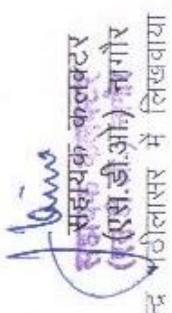 सहायक कलक्टर
(एस.डी.ओ.) नागौर
ठिलासर में लिखवाया